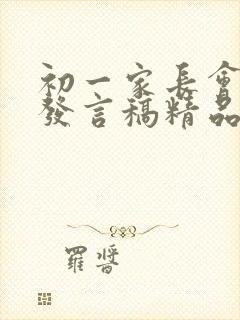 初一家长會
發言稿精品
羅晉